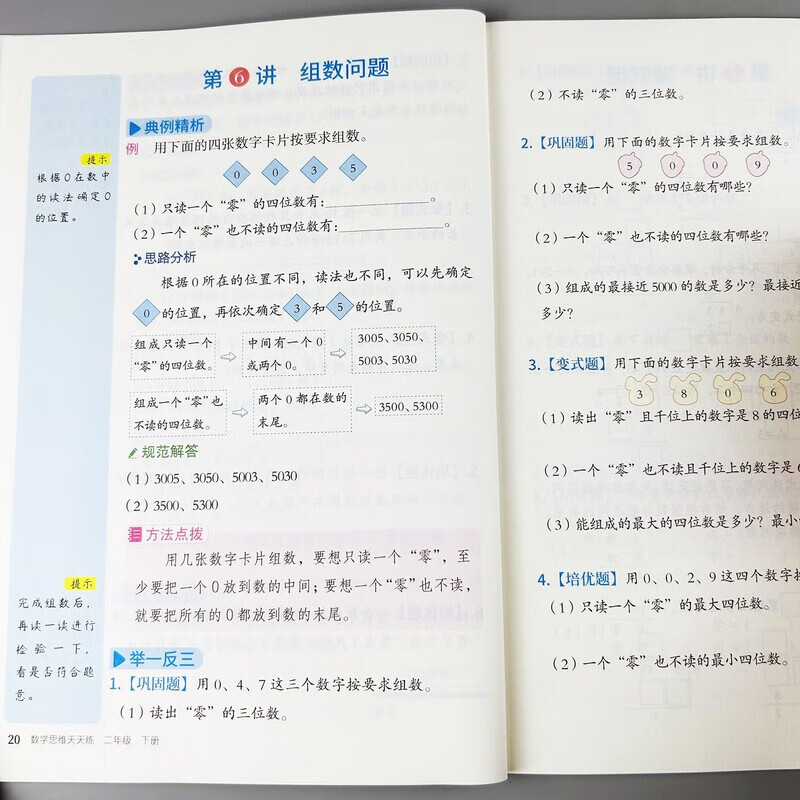 第6讲 组数问题
典例精析
例 用下面的四张数字卡片按要求组数。
0 0 3 5
(1)只读一个“零”的四位数有:____________。
(2)一个“零”也不读的四位数有:____________。
思路分析
根据0所在的位置不同,读法也不同,可以先确定
0的位置,再依次确定3和5的位置。
组成只读一个
“零”的四位数。
中间有一个0
或两个0。
3005、3050、
5003、5030
组成一个“零”也
不读的四位数。
两个0都在数的
末尾。
3500、5300
规范解答
(1)3005、3050、5003、5030
(2)3500、5300
方法点拨
用几张数字卡片组数,要想只读一个“零”,至
少要把一个0放到数的中间;要想一个“零”也不读,
就要把所有的0都放到数的末尾。
举一反三
1.【巩固题】用0、4、7这三个数字按要求组数。
(1)读出“零”的三位数。
提示
根据0在数中
的读法确定0
的位置。
提示
完成组数后,
再读一读进行
检验一下,
看是否符合题
意。
20 数学思维天天练 二年级 下册
(2)不读“零”的三位数。
2.【巩固题】用下面的数字卡片按要求组数。
5 0 0 9
(1)只读一个“零”的四位数有哪些?
(2)一个“零”也不读的四位数有哪些?
(3)组成的最接近5000的数是多少?最接近
多少?
3.【变式题】用下面的数字卡片按要求组数
3 8 0 6
(1)读出“零”且千位上的数字是8的四位
(2)一个“零”也不读且千位上的数字是6
(3)能组成的最大的四位数是多少?最小
4.【培优题】用0、0、2、9这四个数字按
(1)只读一个“零”的最大四位数。
(2)一个“零”也不读的最小四位数。